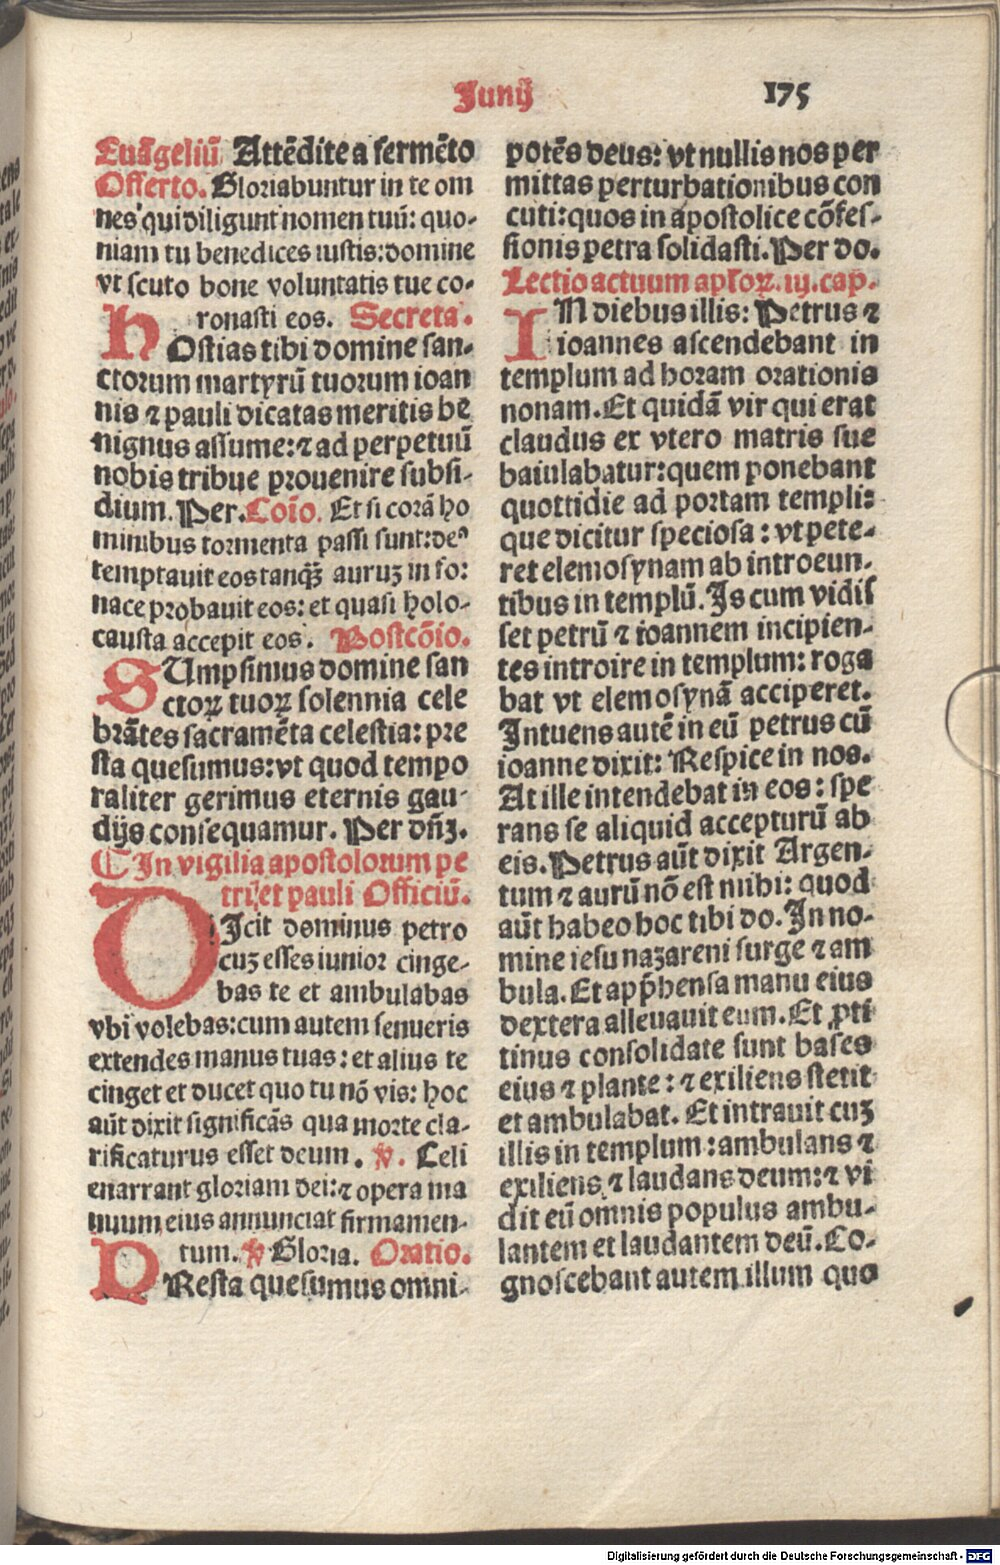 Junij
175
Euãgeliũ Attẽdite a fermẽto
Offerto. Gloriabuntur in te om
nes qui diligunt nomen tuũ: quo-
niam tu benedices iustis: domine
vt scuto bone voluntatis tue co-
ronasti eos. Secreta.
HOstias tibi domine san-
ctorum martyrũ tuorum ioan
nis ⁊ pauli dicatas meritis be
nignus assume: ⁊ ad perpetuũ
nobis tribue prouenire subsi-
dium. Per. Coĩo. Et si corã ho
minibus tormenta passi sunt: deꝰ
temptauit eos tanqȝ̃ auruȝ in for
nace probauit eos: et quasi holo-
causta accepit eos. Postcõio.
SUmpsimus domine san
ctoꝝ tuoꝝ solennia cele
brãtes sacramẽta celestia: pre
sta quesumus: vt quod tempo
raliter gerimus eternis gau-
dijs consequamur. Per dñȝ.
¶ In vigilia apostolorum pe
tri et pauli Officiũ.
DIcit dominus petro
cuȝ esses iunior cinge-
bas te et ambulabas
vbi volebas: cum autem senueris
extendes manus tuas: et alius te
cinget et ducet quo tu nõ vis: hoc
aũt dixit significãs qua morte cla-
rificaturus esset deum. ℣. Celi
enarrant gloriam dei: ⁊ opera ma
nuum eius annunciat firmamen-
tum. ℣ Gloria. Oratio.
PResta quesumus omni-
potẽs deus: vt nullis nos per
mittas perturbationibus con
cuti: quos in apostolice cõfes-
sionis petra solidasti. Per do.
Lectio actuum apl'oꝝ. iij. cap.
IN diebus illis: Petrus ⁊
ioannes ascendebant in
templum ad horam orationis
nonam. Et quidã vir qui erat
claudus ex vtero matris sue
baiulabatur: quem ponebant
quottidie ad portam templi:
que dicitur speciosa: vt pete-
ret elemosynam ab introeun-
tibus in templũ. Is cum vidis
set petrũ ⁊ ioannem incipien-
tes introire in templum: roga
bat vt elemosynã acciperet.
Intuens autẽ in eũ petrus cũ
ioanne dixit: Respice in nos.
At ille intendebat in eos: spe
rans se aliquid accepturũ ab
eis. Petrus aũt dixit Argen-
tum ⁊ aurũ nõ est mihi: quod
aũt habeo hoc tibi do. In no-
mine iesu nazareni surge ⁊ am
bula. Et app̃hensa manu eius
dextera alleuauit eum. Et ꝓti
tinus consolidate sunt bases
eius ⁊ plante: ⁊ exiliens stetit
et ambulabat. Et intrauit cuȝ
illis in templum: ambulans ⁊
exiliens ⁊ laudans deum: ⁊ vi
dit eũ omnis populus ambu-
lantem et laudantem deũ. Co-
gnoscebant autem illum quo
Digitalisierung gefördert durch die Deutsche Forschungsgemeinschaft - DFG